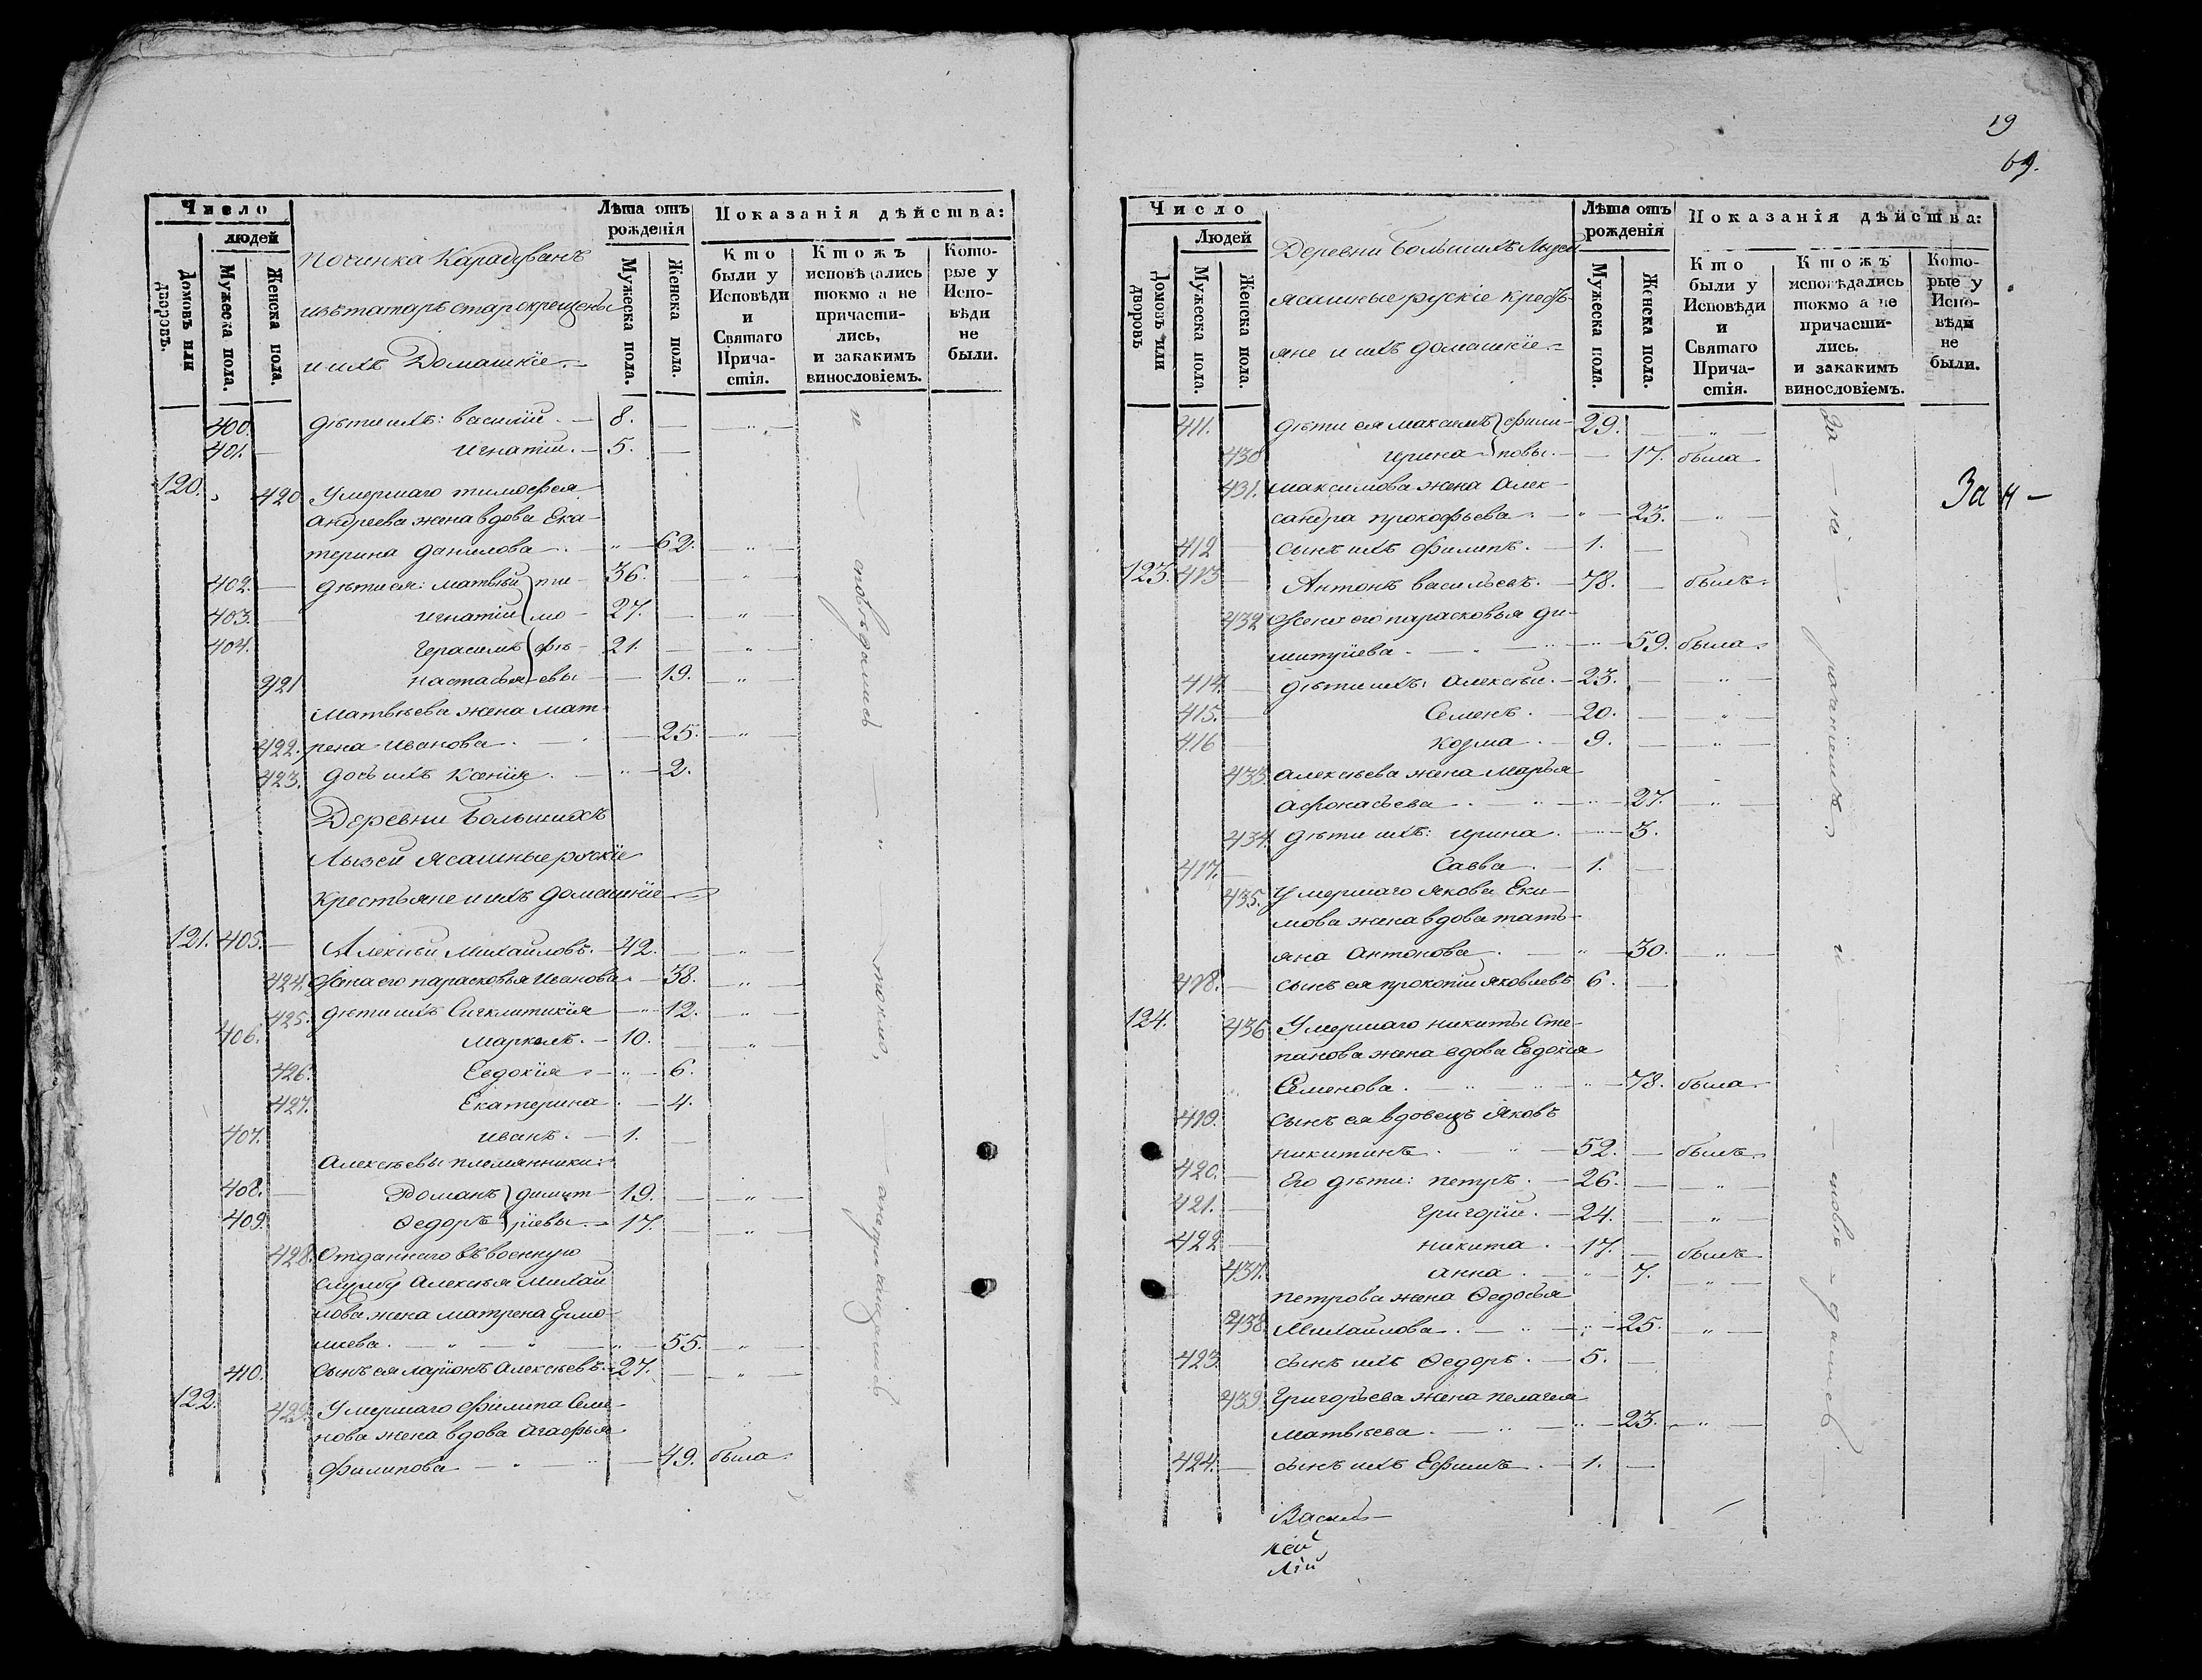 Число
людей
Домовъ или дворовъ.
Мужеска пола.
Женска пола.
Починка Карадувакъ
изъ татаръ старокрещены
и ихъ Домашніе
Лѣта отъ рожденія
Мужеска пола.
Женска пола.
Показанія дѣйства:
Кто были у Исповѣди и Святаго Прича-стія.
Ктожъ исповѣдались токмо а не причасти-лись, и закакимъ винословіемъ.
Кото-рые у Испо-вѣди не были.
400. дѣти ихъ: василій. — 8. — „ —
401. — игнатій. — 5. —
120. „ 420 Умершаго тимофея
андреева жена вдова Ека-
терина данилова — . — „ — 62. — „ —
402. — дѣти ея: матвѣй } ти- 36. — „ —
403. — игнатій } мо- 27. — „ —
404. герасимъ } фѣ- 21. — „ —
421 настасья } евы — 19. — „ —
Матвѣева жена мат-
422. рена Иванова. — 25. — „ —
423. дочь ихъ Ксенія. — „ — 2.
Деревни Большихъ
Лызей ясашные рускіе
крестьяне и ихъ домашніе
121. 405. — Алексѣй Михайловъ. — 42. — „ —
424. Жена его парасковья Иванова — 38. — „ —
425. дѣти ихъ Сигклитикія — „ — 12. — „ —
406. Маркелъ. — 10. — „ —
426. Евдокія. — „ — 6.
427. Екатерина. — 4.
407. иванъ. — 1. —
Алексѣевы племянники:
408. — Романъ } димит- 19. — „ —
409. Ѳедоръ } ріевы. — 17. — „ —
428. Отданнаго въ военную
службу Алексѣя Михай
лова жена матрена Ермо-
лаева. — „ — „ — 55. — „ —
410. Сынъ ея ларіонъ Алексѣевъ. — 27. — „ —
122. 429. Умершаго Филипа Семе-
нова жена вдова Агафья
Филипова — „ — „ — 49. была.
и — — сповѣдались — „ — токмо, — а не причащались
19
69.
Число
Людей
Домовъ или дворовъ
Мужеска пола.
Женска пола.
Деревни Большихъ Лызей
ясашные рускіе кресть-
яне и ихъ домашніе
Лѣта отъ рожденія
Мужеска пола.
Женска пола.
Показанія дѣйства:
Кто были у Исповѣди и Святаго Прича-стія.
Ктожъ исповѣдались токмо а не причасти-лись. и закакимъ винословіемъ.
Кото-рые у Испо-вѣди не были.
411. дѣти ея максимъ } фили- 29. — „ —
430 ирина } повы. — 17. была.
431. максимова жена Алек-
сандра прокофьева. — „ — 23. — „ —
За н —
412 — сынъ ихъ филипъ. — 1. —
123. 413 — Антонъ васильевъ. — 78. — былъ.
432 Жена его парасковья ди-
митріева. — „ — „ — 59. была.
414. — дѣти ихъ: Алексѣй. — 23. — „ —
415. — Семенъ. — 20. — „ —
416 — козма. — 9. — „ —
433. алексѣева жена марья
афонасьева. — „ — „ — 27. — „ —
434. дѣти ихъ: ирина. — „ — 3.
417. — Савва. — 1. —
435. Умершаго якова Еки-
мова жена вдова тать-
яна Антонова. — „ — 30. — „ —
418. — сынъ ея прокопій яковлевъ 6. —
124. 436 Умершаго никиты Сте-
панова жена вдова Евдокія
Семенова. — „ — „ — „ — 78. была.
419. Сынъ ея вдовецъ яковъ
никитинъ. — „ — 52. — былъ.
420. — Его дѣти: петръ. — 26. — „ —
421. — григорій. — 24. — „ —
422 — никита. — 17. — былъ.
437. анна. — „ — 7. — „ —
петрова жена Ѳедосья
438. Михайлова. — „ — „ — 25. — „ —
423. сынъ ихъ Ѳедоръ. — 5. —
439. Григорьева жена пелагея
матвѣева. — „ — „ — 23. — „ —
424. — сынъ ихъ Ефимъ. — 1. —